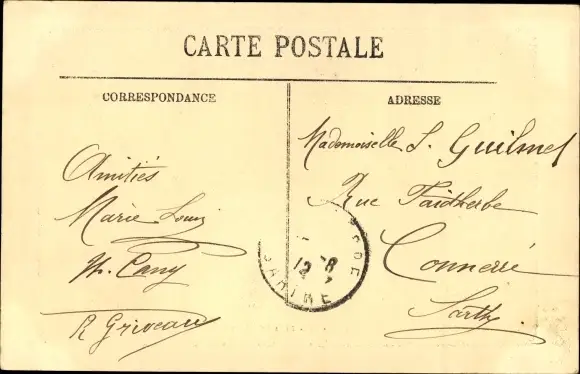 CARTE POSTALE
CORRESPONDANCE
ADRESSE
Amitiés
Marie Louis
M. Cany
R Griveau
Mademoiselle S. Guilmet
Rue Faidherbe
Connerré
Sarthe
SARTHE